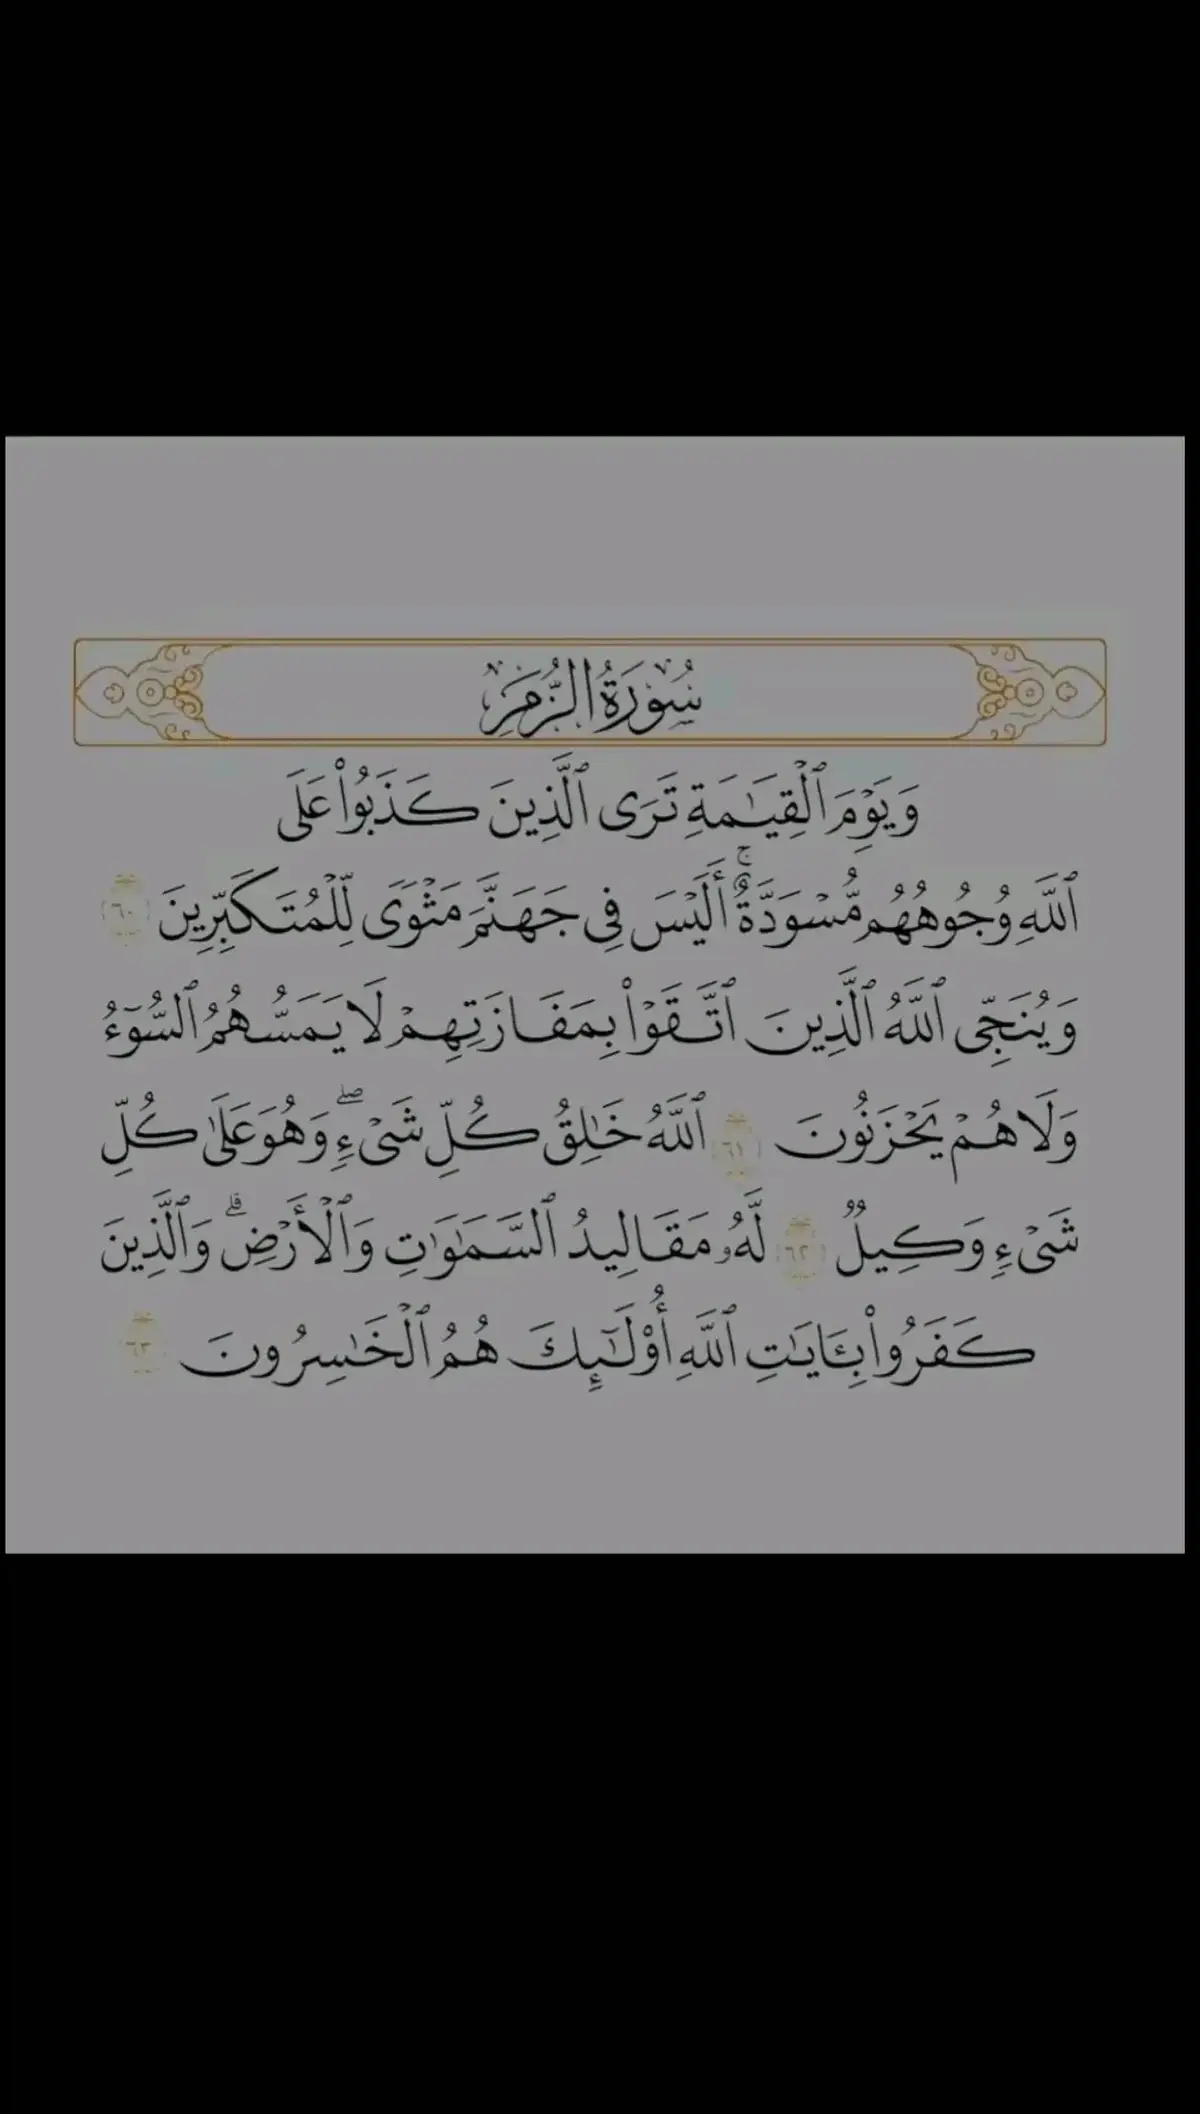 سُورَةُ الزُّمَرِ
وَيَوْمَ ٱلْقِيَٰمَةِ تَرَى ٱلَّذِينَ كَذَبُوا۟ عَلَى
ٱللَّهِ وُجُوهُهُم مُّسْوَدَّةٌ ۚ أَلَيْسَ فِى جَهَنَّمَ مَثْوًى لِّلْمُتَكَبِّرِينَ ٦٠
وَيُنَجِّى ٱللَّهُ ٱلَّذِينَ ٱتَّقَوْا۟ بِمَفَازَتِهِمْ لَا يَمَسُّهُمُ ٱلسُّوٓءُ
وَلَا هُمْ يَحْزَنُونَ ٦١ ٱللَّهُ خَٰلِقُ كُلِّ شَىْءٍ ۖ وَهُوَ عَلَىٰ كُلِّ
شَىْءٍ وَكِيلٌ ٦٢ لَّهُۥ مَقَالِيدُ ٱلسَّمَٰوَٰتِ وَٱلْأَرْضِ ۗ وَٱلَّذِينَ
كَفَرُوا۟ بِـَٔايَٰتِ ٱللَّهِ أُو۟لَٰٓئِكَ هُمُ ٱلْخَٰسِرُونَ ٦٣